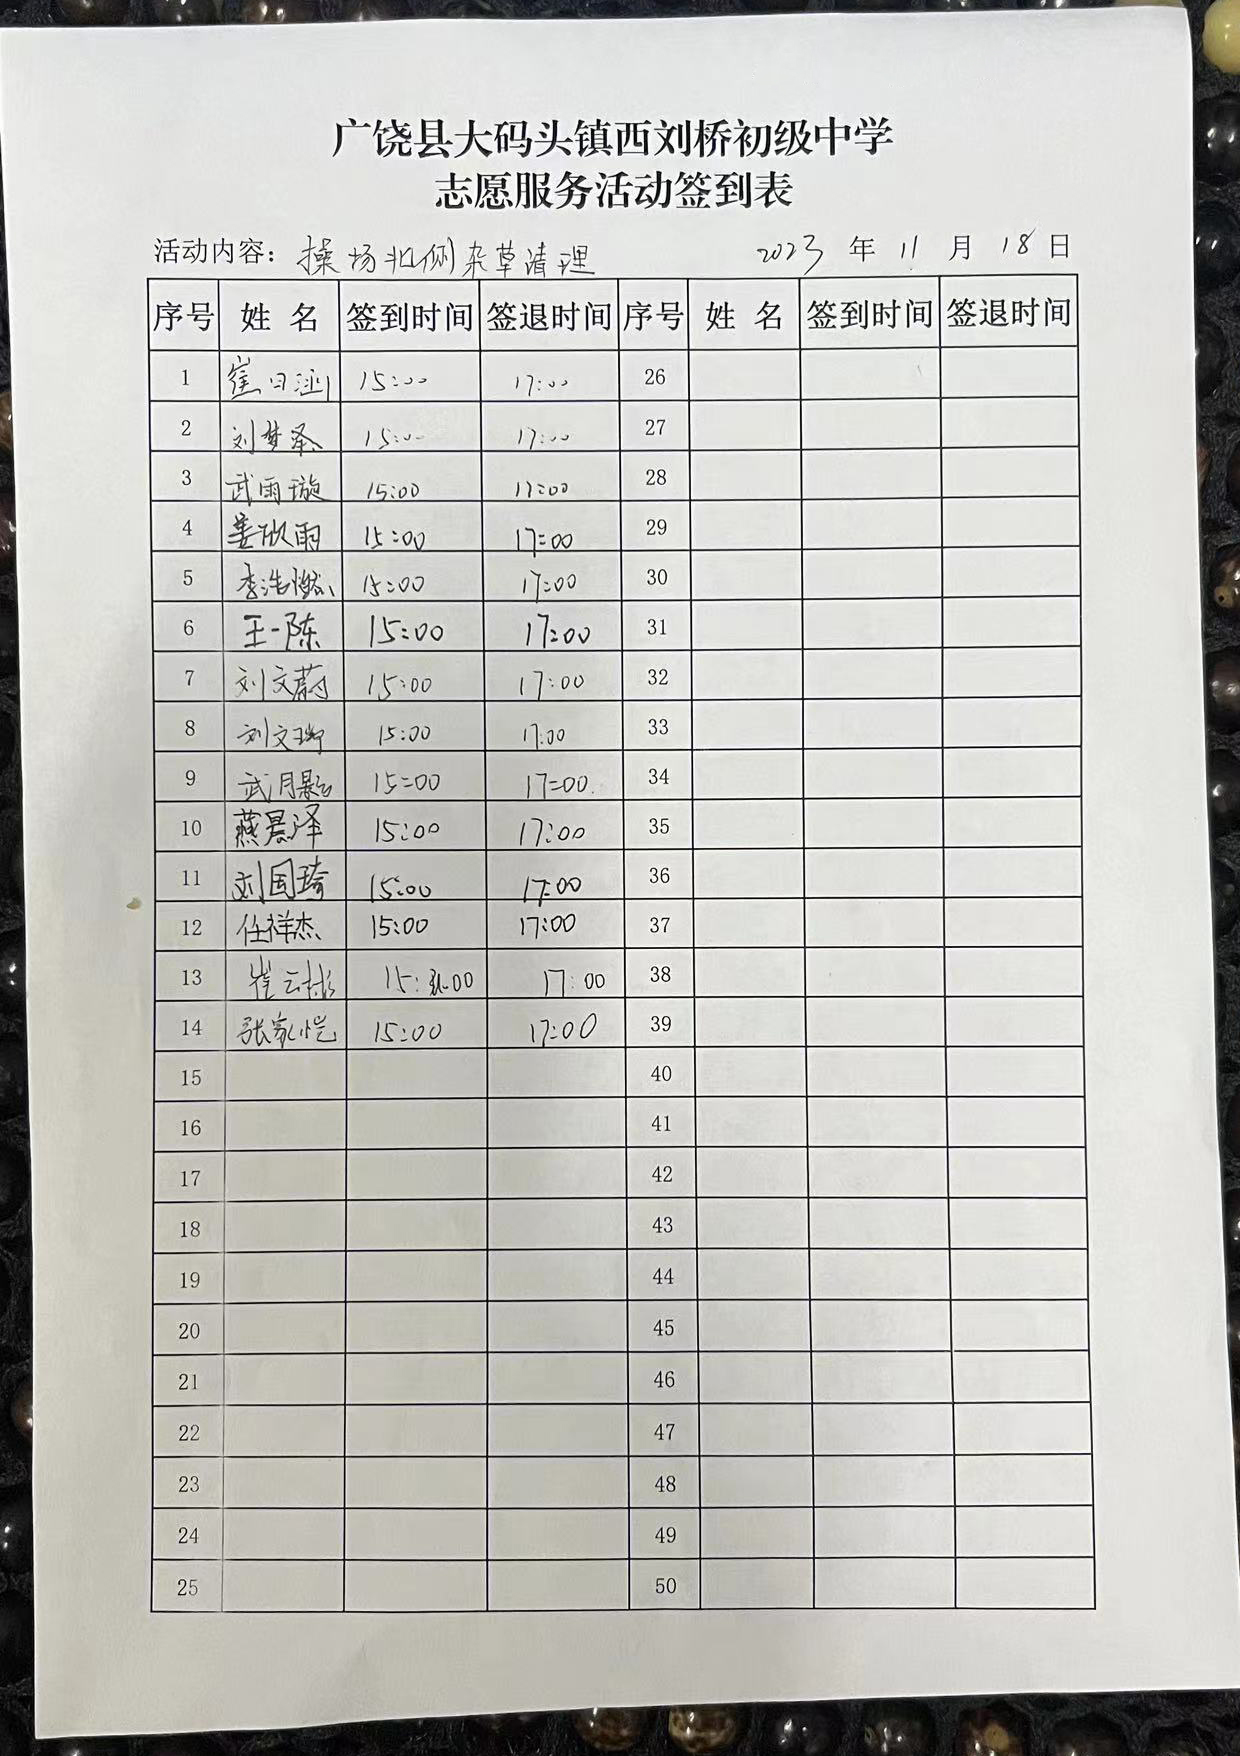 广饶县大码头镇西刘桥初级中学
志愿服务活动签到表
活动内容：操场北侧杂草清理 2023 年 11 月 18 日
序号 姓 名 签到时间 签退时间 序号 姓 名 签到时间 签退时间
1 崔日涵 15:00 17:00 26
2 刘梦泽 15:00 17:00 27
3 武雨璇 15:00 17:00 28
4 姜欣雨 15:00 17:00 29
5 李浩燃 15:00 17:00 30
6 王一陈 15:00 17:00 31
7 刘文蔚 15:00 17:00 32
8 刘文瑞 15:00 17:00 33
9 武月影 15:00 17:00 34
10 燕晨泽 15:00 17:00 35
11 刘国琦 15:00 17:00 36
12 任祥杰 15:00 17:00 37
13 崔云彬 15:00 17:00 38
14 张家恺 15:00 17:00 39
15 40
16 41
17 42
18 43
19 44
20 45
21 46
22 47
23 48
24 49
25 50